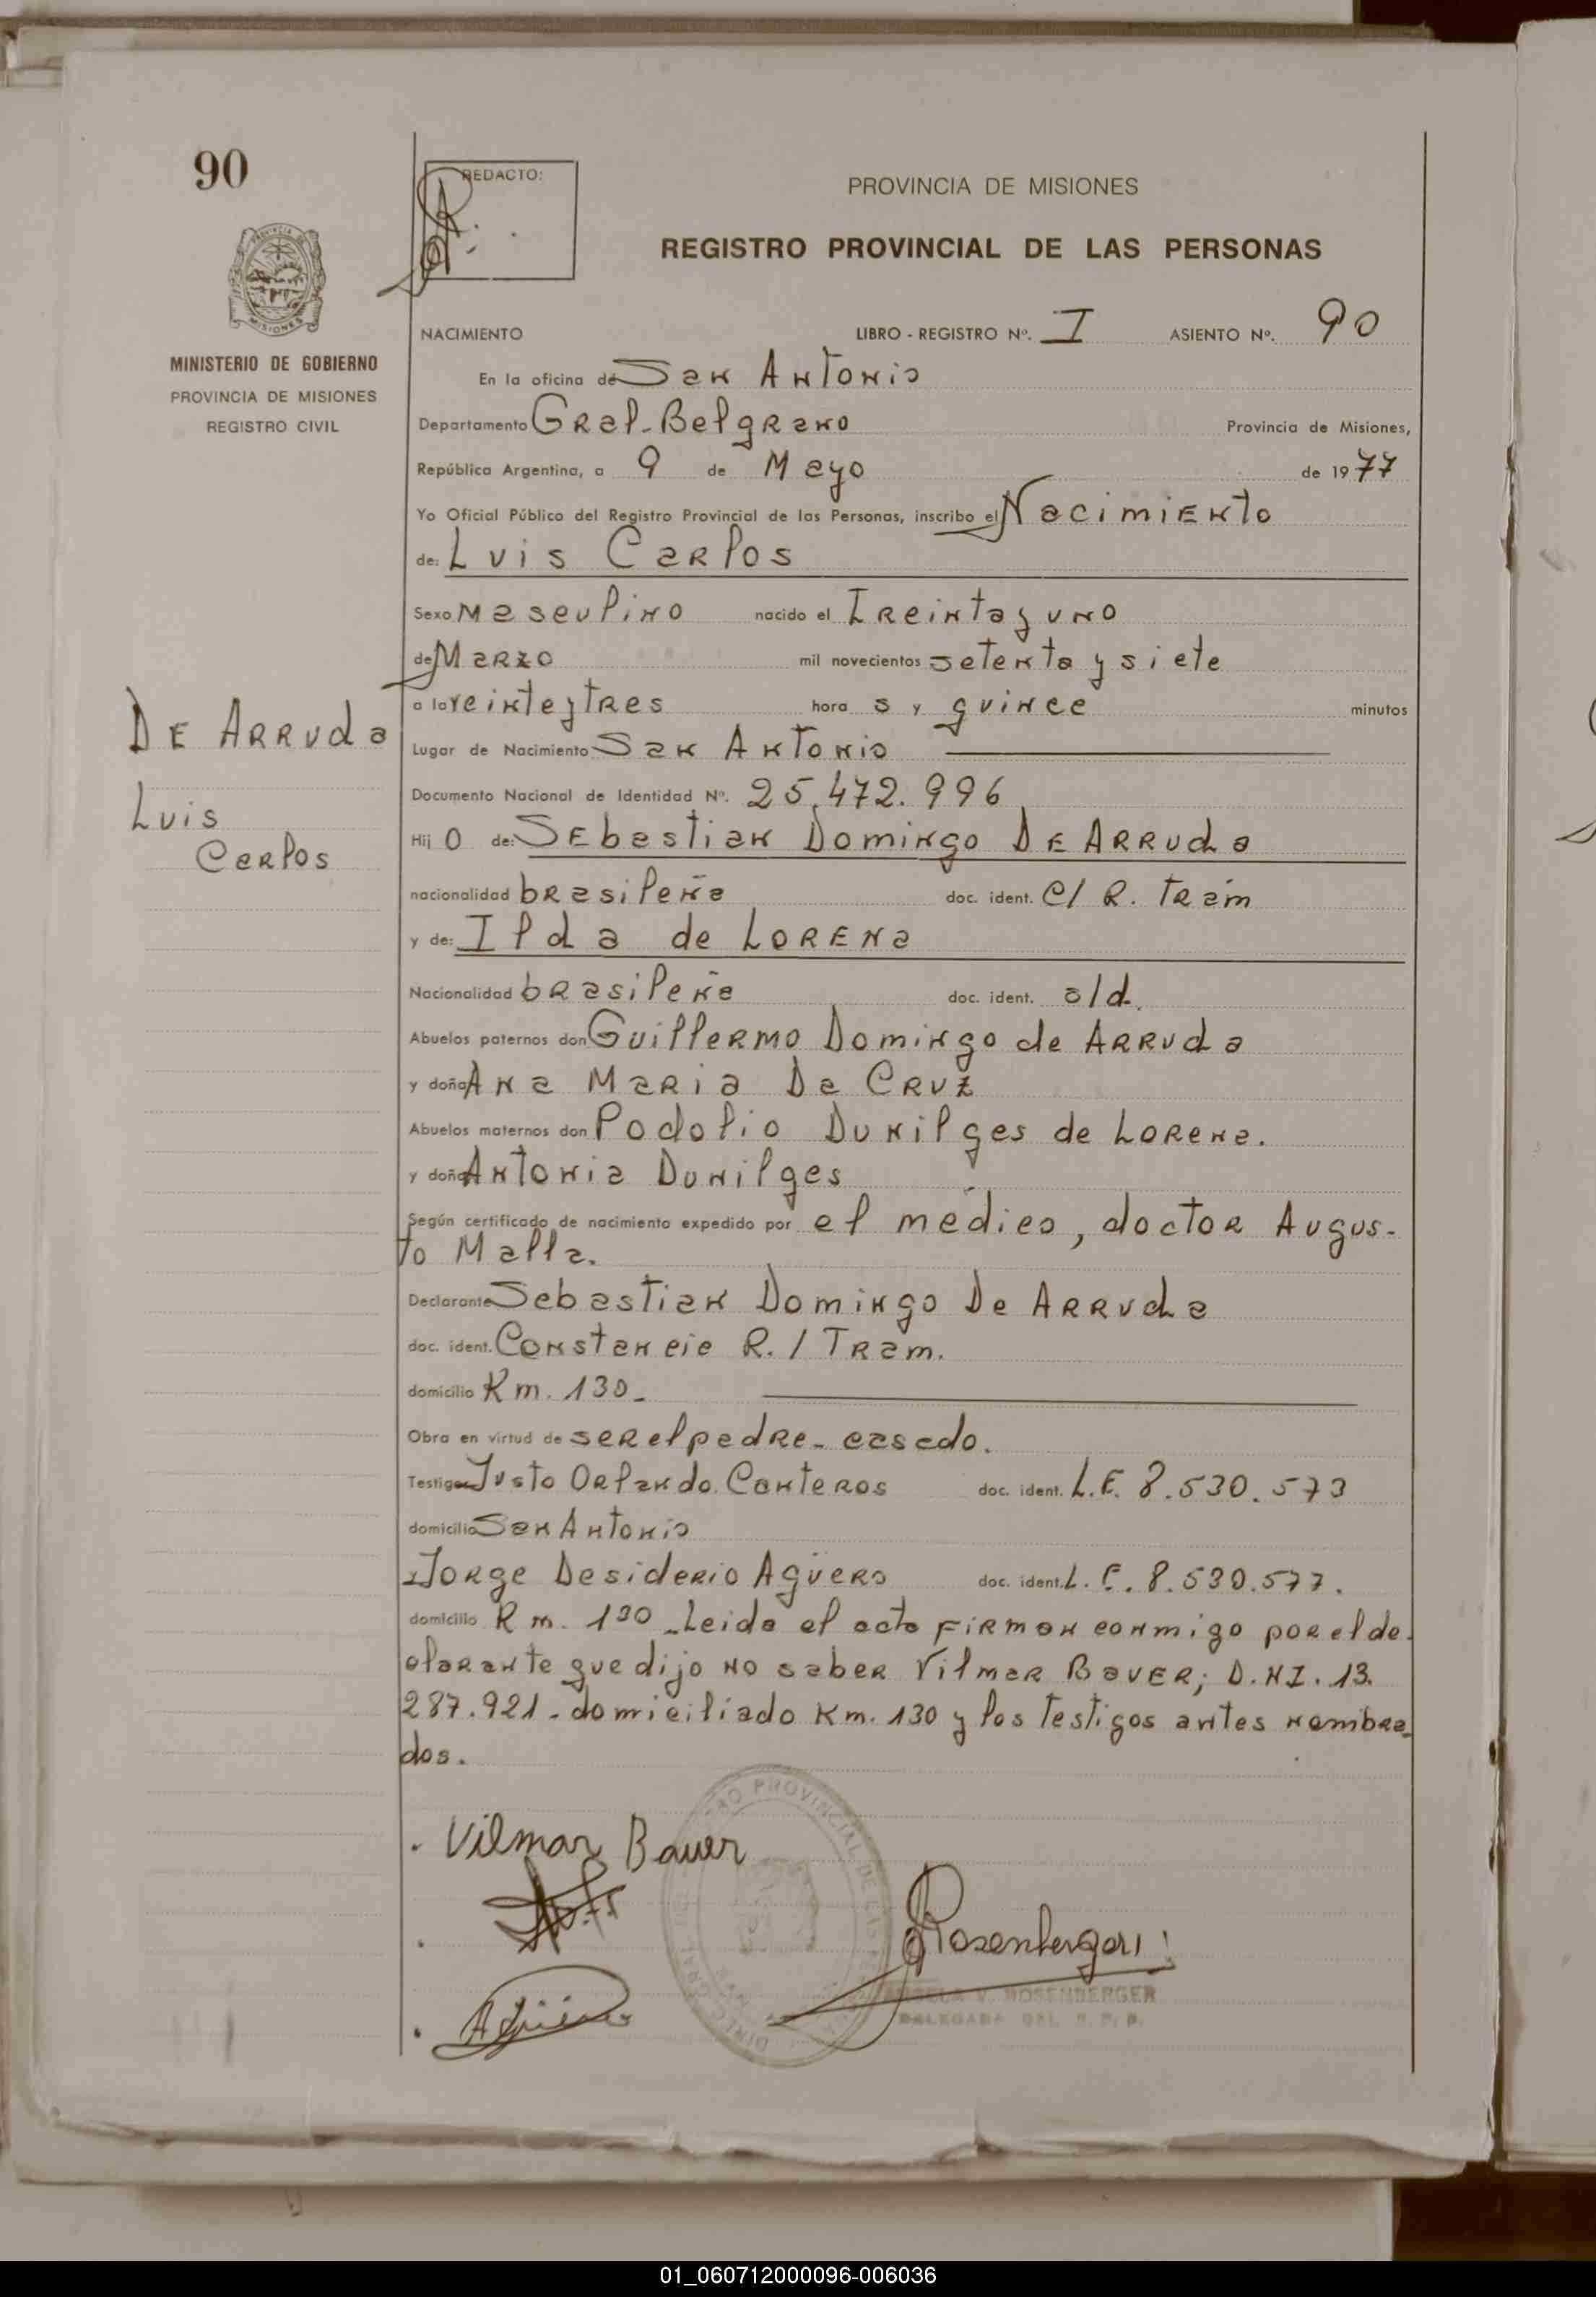 90
REDACTO:
PROVINCIA DE MISIONES
REGISTRO PROVINCIAL DE LAS PERSONAS
MISIONES
MINISTERIO DE GOBIERNO
PROVINCIA DE MISIONES
REGISTRO CIVIL
NACIMIENTO LIBRO - REGISTRO Nº. I ASIENTO Nº. 90
En la oficina de San Antonio
Departamento Gral-Belgrano Provincia de Misiones,
República Argentina, a 9 de Mayo de 1977
Yo Oficial Público del Registro Provincial de las Personas, inscribo el Nacimiento
de: Luis Carlos
Sexo masculino nacido el Treinta y uno
de Marzo mil novecientos setenta y siete
a la veinte y tres hora s y quince minutos
DE ARRUda
Luis
Carlos
Lugar de Nacimiento San Antonio
Documento Nacional de Identidad Nº. 25.472.996
Hij o de: Sebastian Domingo DE ARRUda
nacionalidad brasileña doc. ident. C/ R. Tram
y de: Ilda de LORENa
Nacionalidad brasileña doc. ident. a/d.
Abuelos paternos don Guillermo Domingo de ARRUda
y doña Ana Maria Da CRUZ
Abuelos maternos don Podolio Dunilges de Lorena.
y doña Antonia Dunilges
Según certificado de nacimiento expedido por el médico, doctor Augus-
to Malla.
Declarante Sebastian Domingo De ARRUda
doc. ident. Constancia R. / Tram.
domicilio Km. 130-
Obra en virtud de ser el padre- casado.
Testigos Justo Orlando Canteros doc. ident. L.E. 8.530.573
domicilio San Antonio
y Jorge Desiderio Agüero doc. ident. L.E. 8.530.577.
domicilio Km. 130-Leida el acta firman conmigo por el de-
clarante que dijo no saber Vilmar Bauer; D.N.I. 13.
287.921-domiciliado Km. 130 y los testigos antes nombra-
dos.
Vilmar Bauer
Rosenberger
ROSENBERGER
DELEGADA DEL R. P. P.
01_060712000096-006036